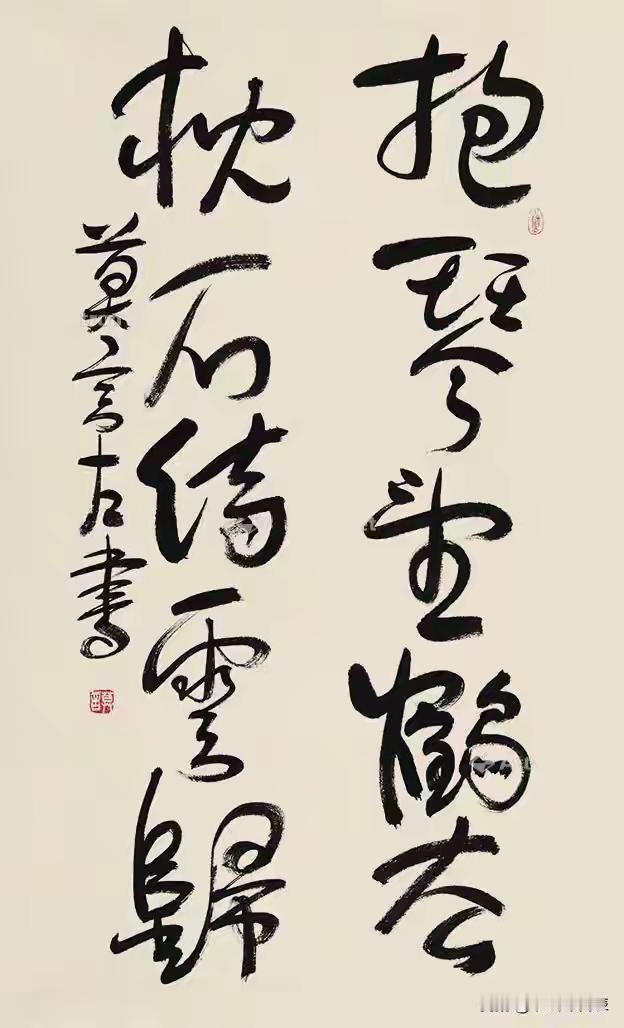 抱琴望鶴去
枕石待雲歸
莫言左書